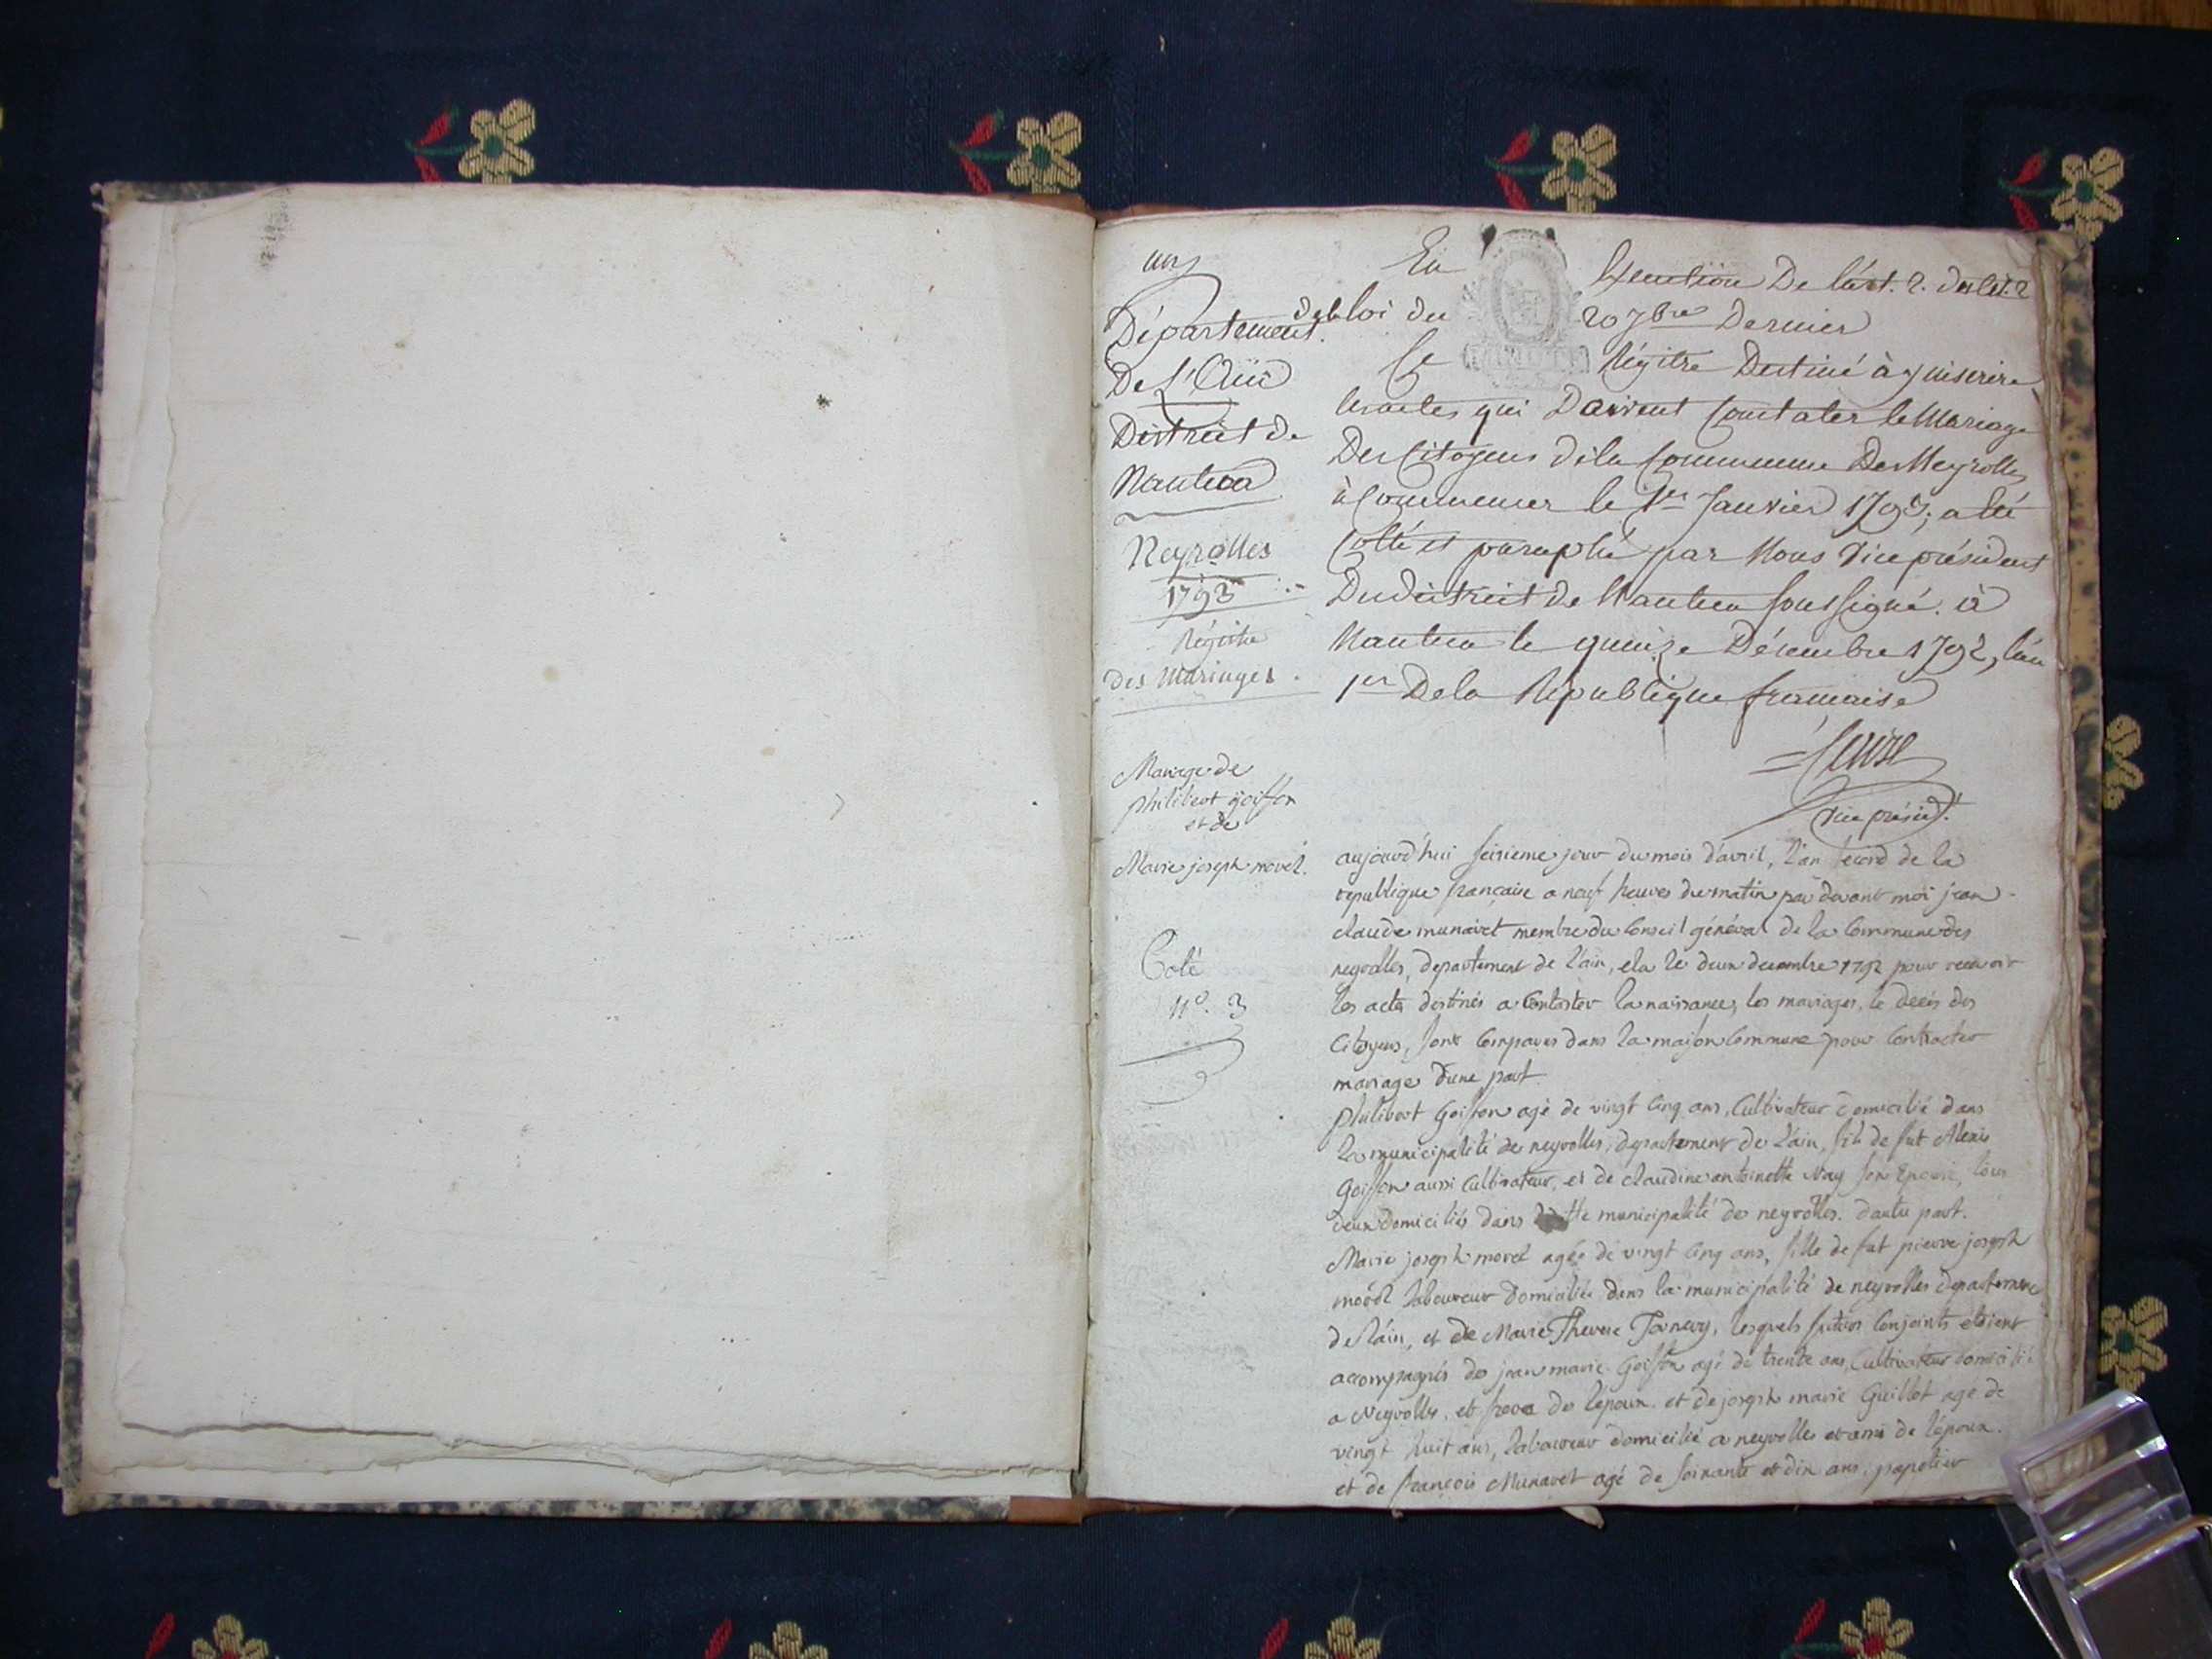 un
Département
De L'Ain
District de
Nantua
Neyrolles
1793
Régitre
des Mariages.
En Execution De l'art. 2. du tit. 2
de la loi du 20 7bre Dernier
Le Régitre Destiné à y inscrire
les actes qui Doivent Constater le Mariage
Des Citoyens de la Commune Des Neyrolles
à Commencer le 1er Janvier 1793; a été
Cotté et paraphé par Nous Vice président
Du district de Nantua soussigné. à
Nantua le quinze Décembre 1792, l'an
1er De la République française
vice présid.t
Mariage de
philibert goiffon
et de
Marie joseph morel.
Coté
N°. 3
aujourd'hui seizieme jour du mois d'avril, l'an second de la
republique française a neuf heures du matin par devant moi jean
claude munaret membre du Conseil général de la Commune des
neyrolles, departement de l'ain, elu le deux decembre 1792 pour recevoir
les actes destinés a Constater la naissance, les mariages, le decés des
Citoyens, sont Comparus dans la maison Commune pour Contracter
mariage d'une part
philibert Goiffon agé de vingt Cinq ans, Cultivateur domicilié dans
la municipalité de neyrolles, departement de l'ain, fils de fut Alexis
Goiffon aussi Cultivateur, et de claudine antoinette Nay son Epouse, tous
deux domiciliés dans municipalité des neyrolles. dautre part.
Marie joseph morel agée de vingt Cinq ans, fille de fut pierre joseph
morel laboureur domiciliée dans la municipalité de neyrolles departement
de l'ain, et de Marie Therese Tornery, lesquels futurs Conjoints étoient
accompagnés de jean marie Goiffon agé de trente ans, Cultivateur domicilié
a Neyrolles, et frere de l'epoux. et de joseph marie Guillot agé de
vingt huit ans, laboureur domicilié a neyrolles et ami de l'époux.
et de françois Munaret agé de soixante et dix ans, papetier